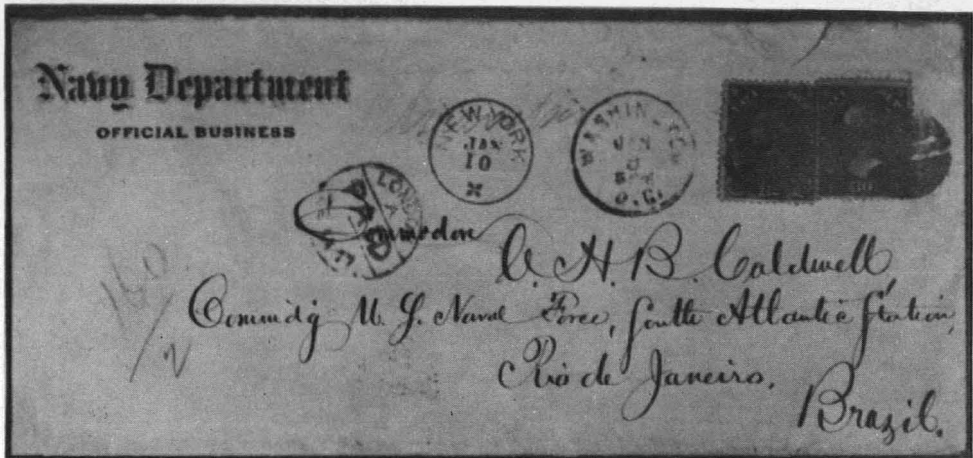 Navy Department
OFFICIAL BUSINESS
NEW YORK
JAN
10
WASHINGTON
JAN
D.C.
LONDON
PAID
Commodore
C. H. B. Caldwell,
Commdg U. S. Naval Force, South Atlantic Station,
Rio de Janeiro,
Brazil.
160
2